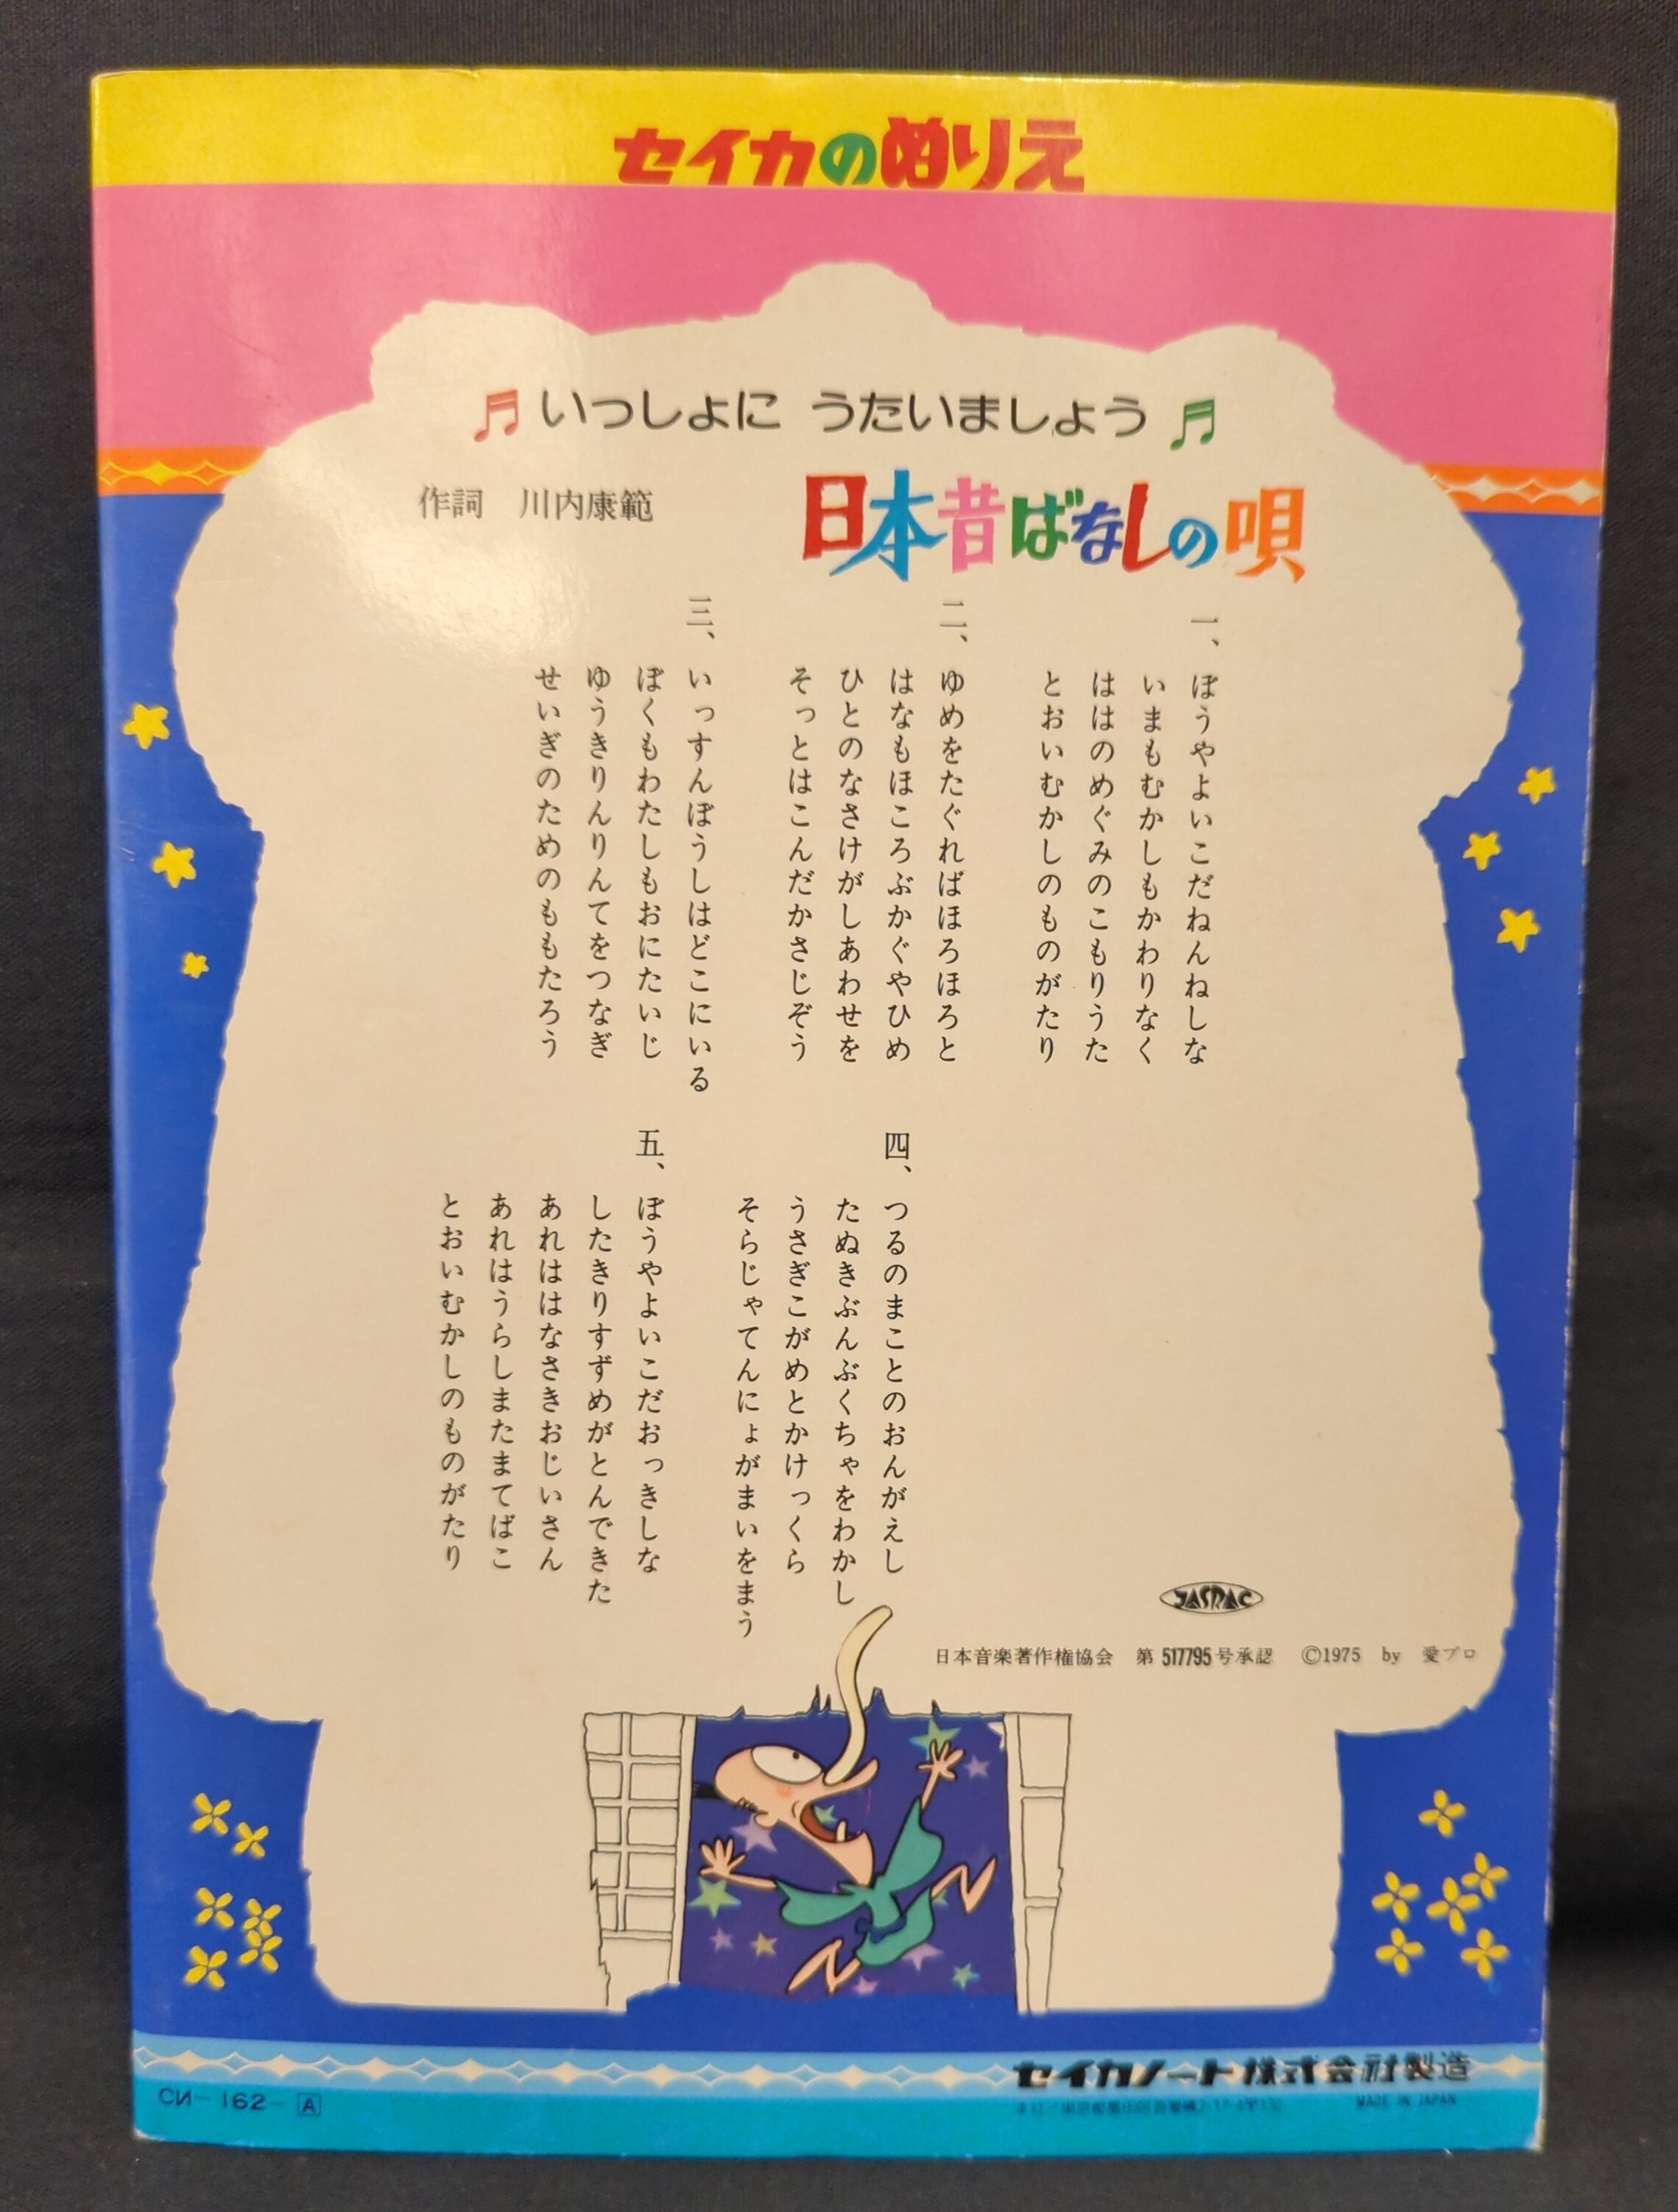 セイカのぬりえ
いっしょに うたいましょう
日本昔ばなしの唄
作詞 川内康範
一、ぼうやよいこだねんねしな
いまもむかしもかわりなく
ははのめぐみのこもりうた
とおいむかしのものがたり
二、ゆめをたぐればほろほろと
はなもほころぶかぐやひめ
ひとのなさけがしあわせを
そっとはこんだかさじぞう
三、いっすんぼうしはどこにいる
ぼくもわたしもおにたいじ
ゆうきりんりんてをつなぎ
せいぎのためのももたろう
四、つるのまことのおんがえし
たぬきぶんぶくちゃをわかし
うさぎこがめとかけっくら
そらじゃてんにょがまいをまう
五、ぼうやよいこだおっきしな
したきりすずめがとんできた
あれははなさきおじいさん
あれはうらしまたまてばこ
とおいむかしのものがたり
JASRAC
日本音楽著作権協会 第517795号承認 ©1975 by 愛プロ
セイカノート株式会社製造
MADE IN JAPAN
CN-162-A